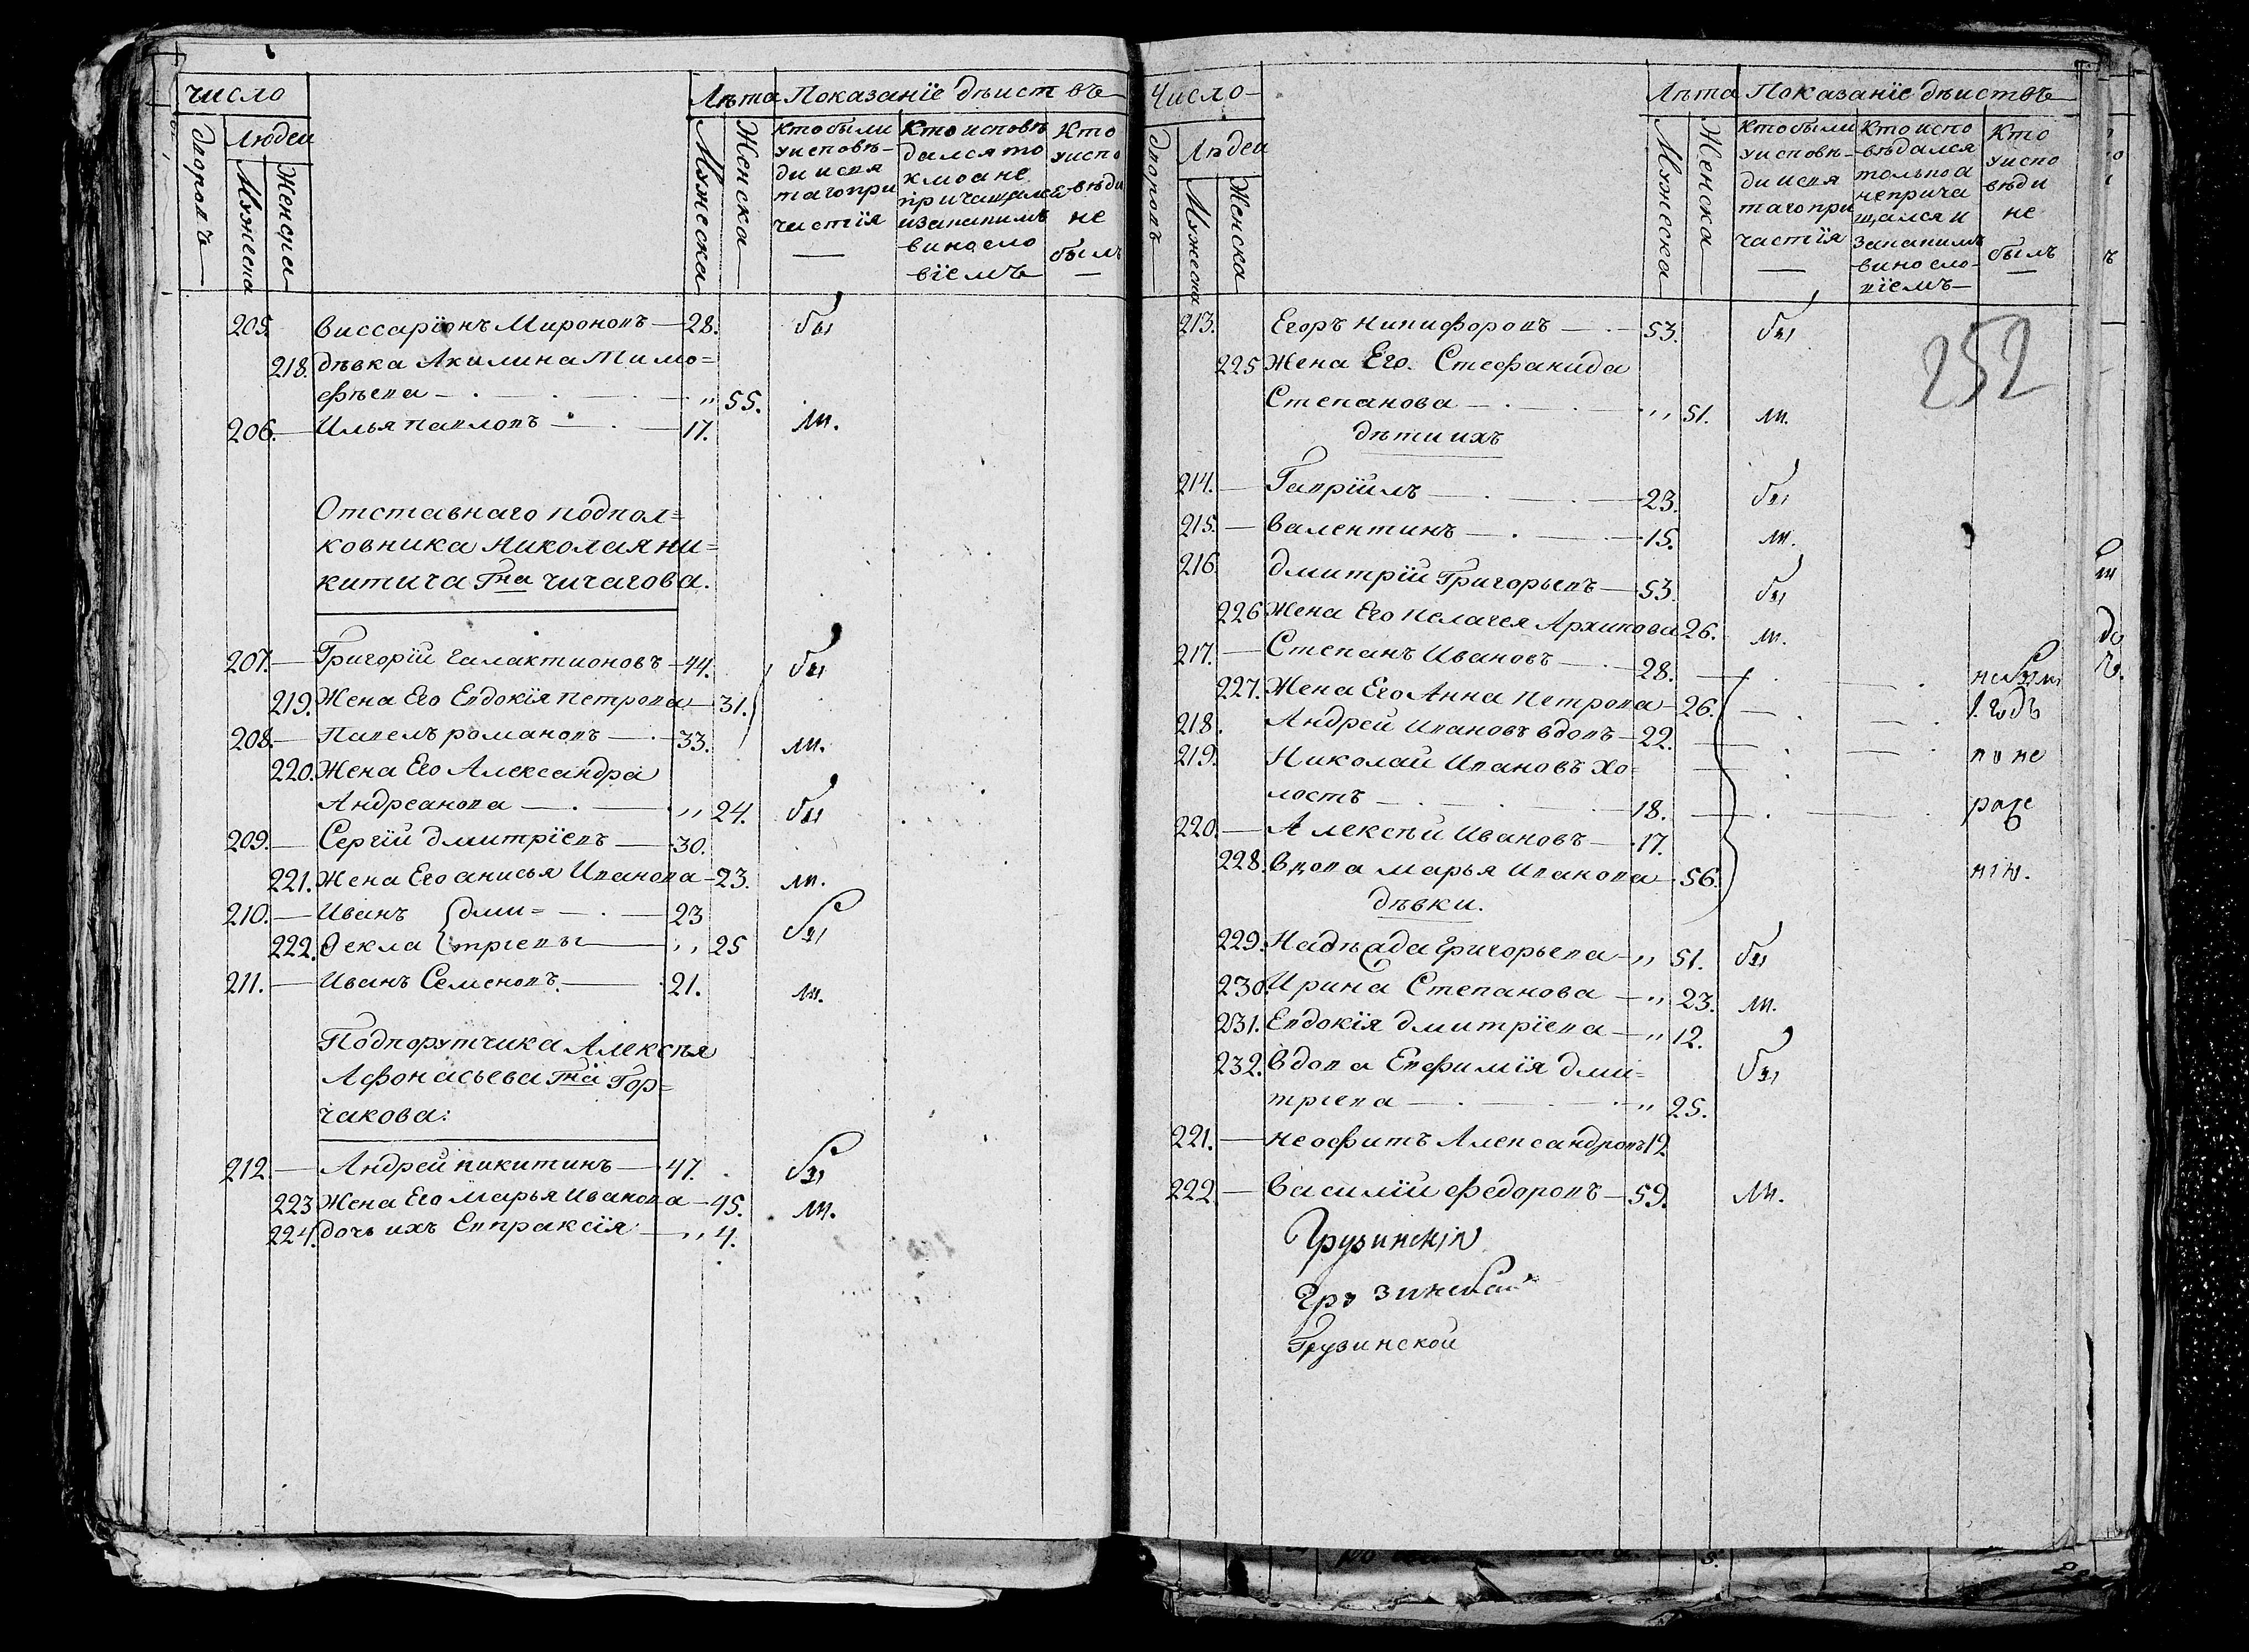 число
Лѣта Показанїе дѣиствъ
дворовъ
Людеи
Мужеска
Женска
Мужеска
Женска
кто были
уисповѣ-
ди исвя
таго при
частїя
Кто исповѣ
дался то
кмо а не
причащался
изакакимъ
виносло
вїемъ
Кто
уиспо
вѣди
не
былъ
205. Виссарїонъ Мироновъ — 28. бы
218. дѣвка Акилина Тимо=
фѣева — „ 55.
206. — Илья Павловъ — 17. ли.
Отставнаго подпол=
ковника Николая Ни=
китича Гна Чичагова.
207. — Григорїй Галактионовъ — 44. бы
219. Жена Его Евдокїя Петрова — 31.
208. — Павелъ Романовъ — 33. ли.
220. Жена Его Александра
Андреанова — „ 24. бы
209. — Сергїй Дмитрїевъ — 30.
221. Жена Его анисья Иванова — 23. ли.
210. — Иванъ { дми= — 23
222. Фекла { трїевы — „ 25 бы
211. — Иванъ Семеновъ. — 21. ли.
Подпорутчика Алексѣя
Афонасьева Гна Гор=
чакова:
212. — Андрей Никитинъ — 47. бы
223 Жена Его Марья Иванова — 45. ли.
224. дочь ихъ Евпраксїя — „ 4.
Число
Лѣта Показанїе дѣиствъ
дворовъ
Людеи
Мужеска
Женска
Мужеска
Женска
Кто были
уисповѣ-
ди исвя
таго при
частїя
Кто испо
вѣдался
только а
неприча
щался и
закакимъ
виносло-
вїемъ
Кто
уиспо
вѣди
не
былъ
252
213. Егоръ Никифоровъ — 53. бы
225 Жена Его. Стефанида
Степанова — „ 51. ли.
дѣти ихъ
214. — Гаврїилъ — 23. бы
215. — Валентинъ — 15. ли.
216. Дмитрїй Григорьевъ — 53. бы
226 Жена Его Пелагея Архипова 26. ли.
217. — Степанъ Ивановъ — 28. — небыли
227. Жена Его Анна Петрова — 26. 1. годъ
218. Андрей Ивановъ вдовъ — 22.
219. Николай Ивановъ хо= по не
лостъ — 18.
220. — Алексѣй Ивановъ — 17.
228. Вдова Марья Иванова — 56.
дѣвки.
229. Надѣжда Григорьева — „ 51. бы
230. Ирина Степанова — „ 23. ли.
231. Евдокїя Дмитрїева — „ 12.
232. Вдова Евфимїя Дми= бы
трїева — „ 25.
221. — Неофитъ Александровъ 12
222 — Василїй Федоровъ — 59. ли.
Грузинскїй
Грузинской